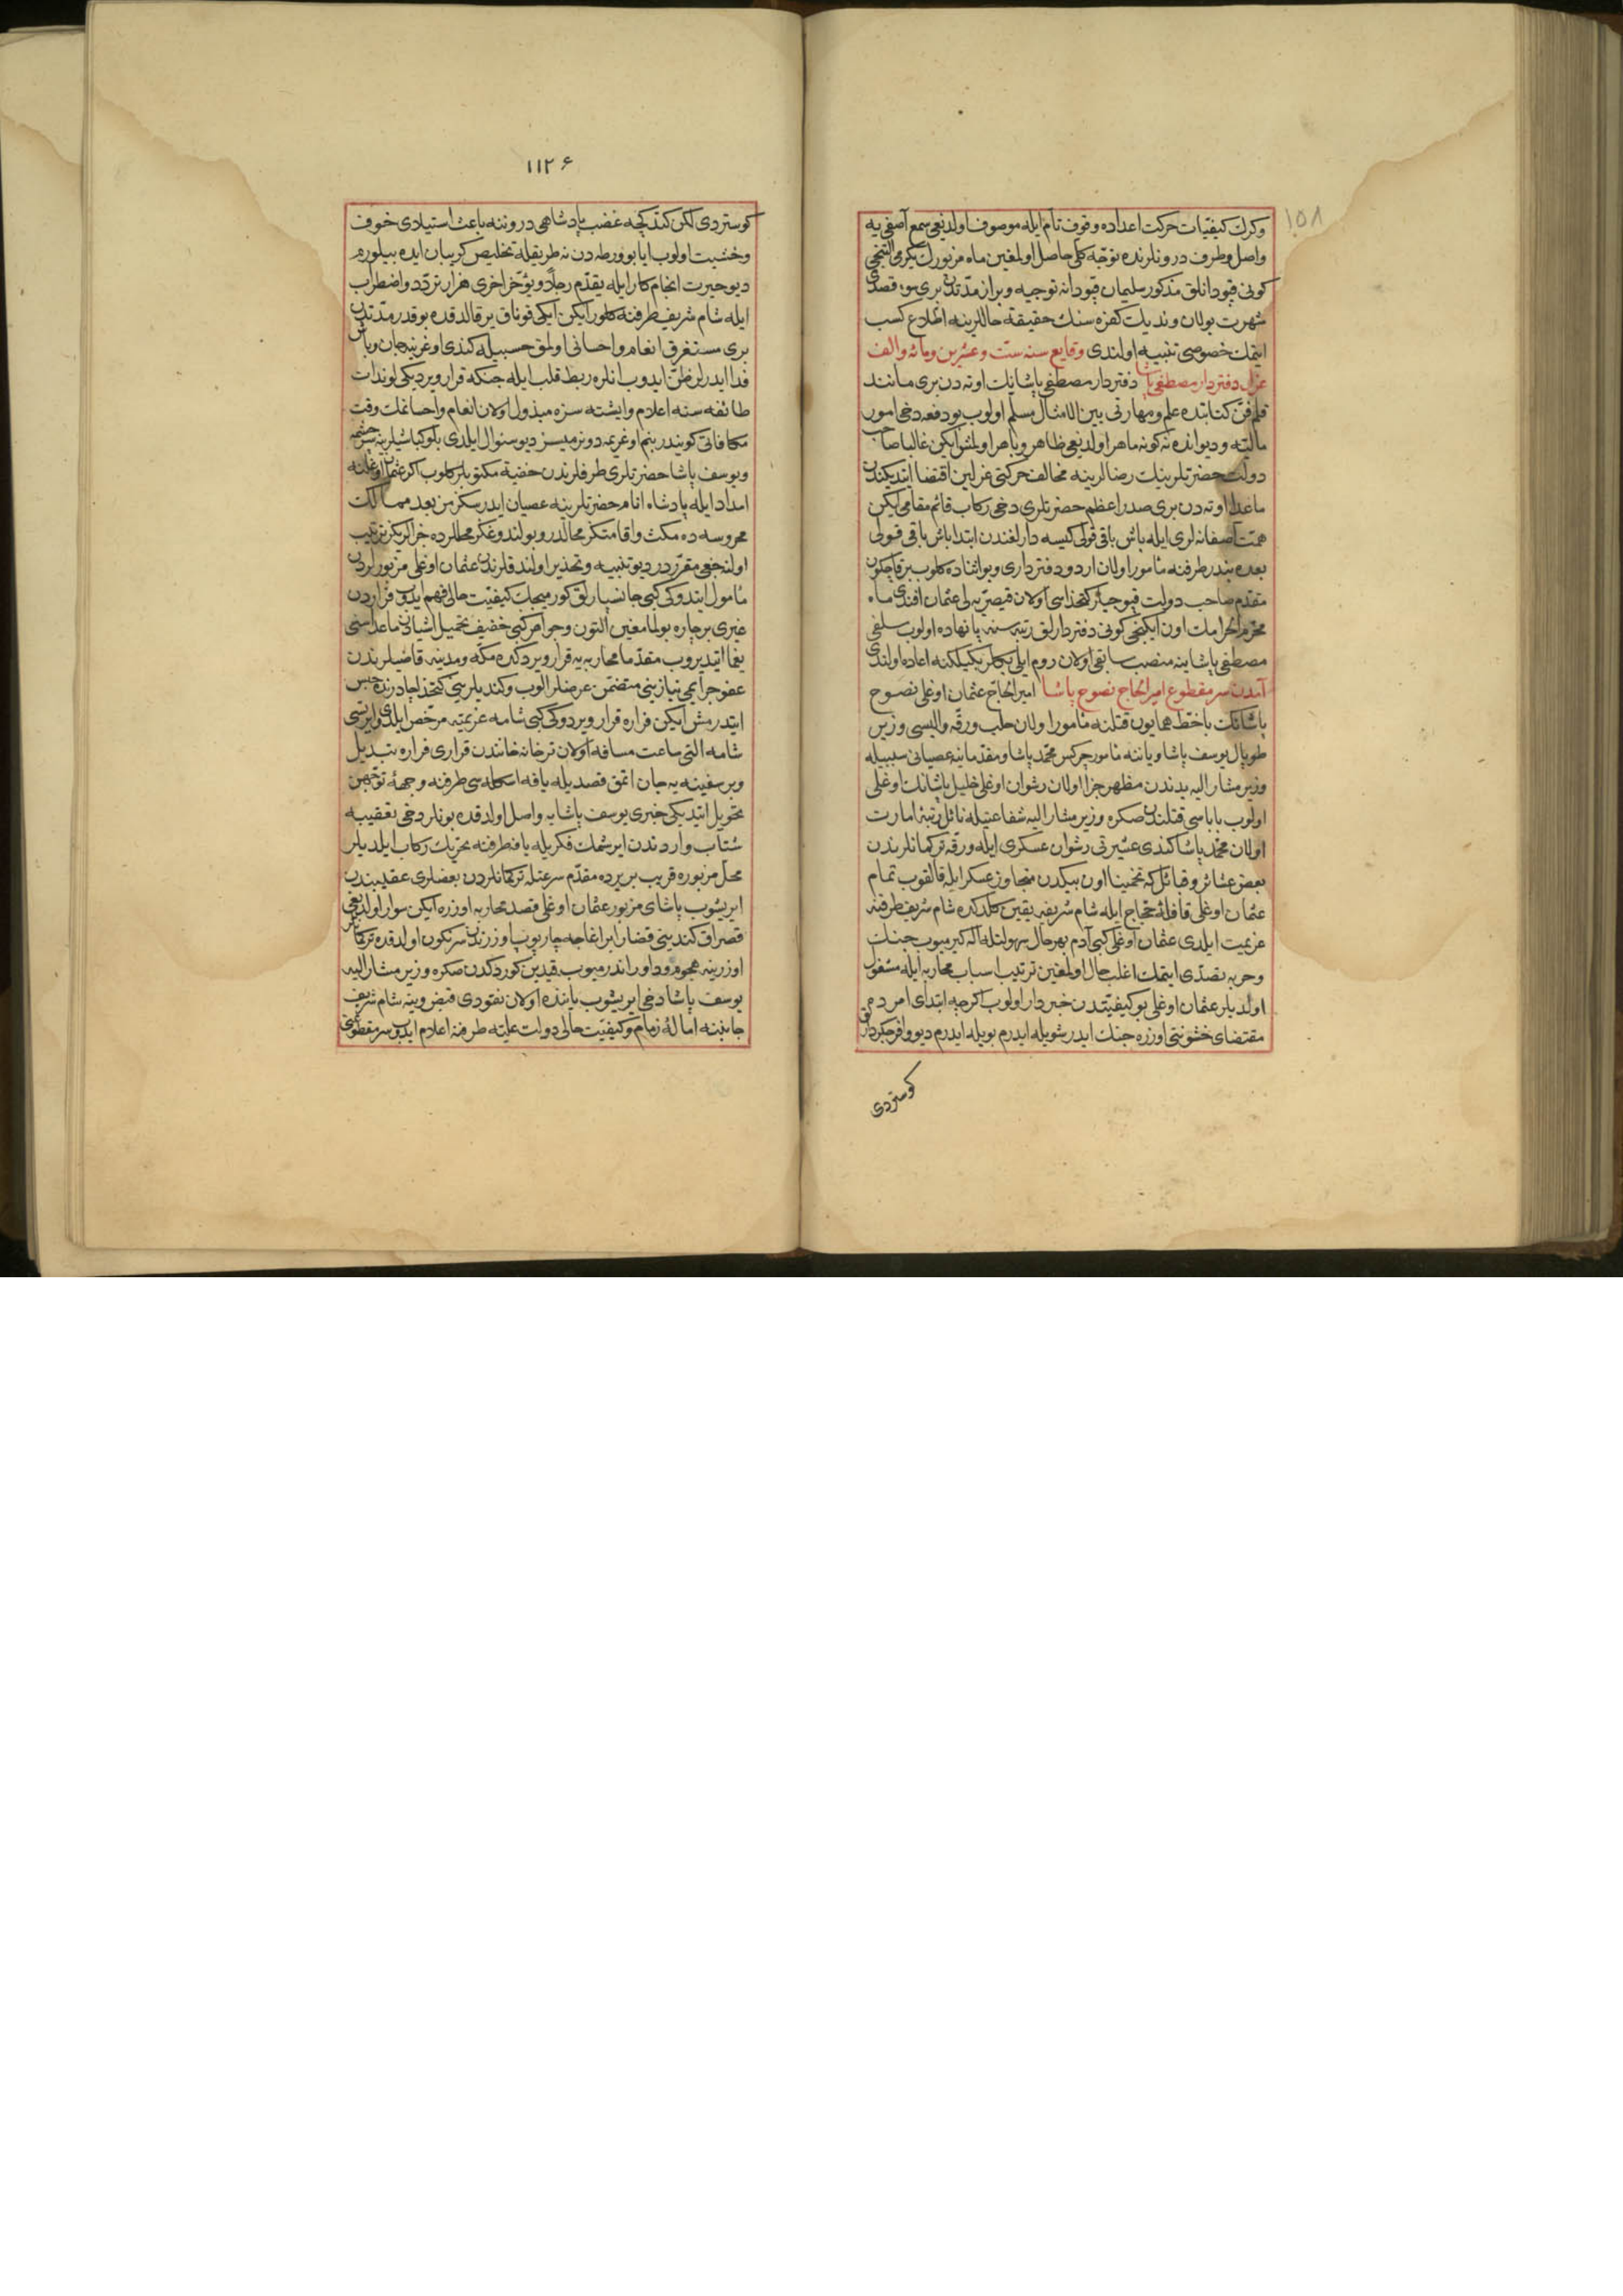 ١٥٨
وكرك كيفيات حركت اعداده وقوف تام ايله موصوف اولديغى سمع آصفى يه
واصل وطرف درونلرنده توجه كلى حاصل اولمغين ماه مزبورك يكرمى التنجى
كونى قپودانلق مذكور سليمان قپودانه توجيه وبراز مدتدن برى سوء قصدى
شهرت بولان ونديك كفره سنك حقيقة حاللرينه اطلاع كسب
ايتمك خصوصى تنبيه اولندى وقايع سنه ست وعشرين ومائه والف
عزل دفتردار مصطفى پاشا دفتردار مصطفى پاشانك اوته دن برى مانند
قلم فن كتابتده علم ومهارتى بين الامثال مسلم اولوب بو دفعه دخى امور
ماليه وديوانده نه كونه ماهر اولديغى ظاهر وباهر اولمش ايكن غالبا صاحب
دولت حضرتلرينك رضالرينه مخالف حركتى عزلين اقتضا ايتديكندن
ماعدا اوته دن برى صدر اعظم حضرتلرى دخى ركاب قائم مقامى ايكن
همت آصفانه لرى ايله باش باقى قولى كيسه دارلغندن ابتدا باش باقى قولى
بعده بندر طرفنه مأمور اولان اردو دفتردارى وبو اثناده كلوب بر قاچ كون
مقدم صاحب دولت قپوجيلر كتخداسى اولان قيصريه لى عثمان افندى ماه
محرم الحرامك اون ايكنجى كونى دفتردارلق رتبه سنه پانهاده اولوب سلفى
مصطفى پاشا ينه منصب سابقى اولان روم ايلى بكلربكيلكنه اعاده اولندى
آمدن سر مقطوع امير الحاج نصوح پاشا امير الحاج عثمان اوغلى نصوح
پاشانك باخط همايون قتلنه مأمور اولان حلب ورقه واليسى وزير
طوپال يوسف پاشا وياننه مأمور چركس محمد پاشا ومقدما ينه عصيانى سببيله
وزير مشار اليه يدندن مظهر جزا اولان رشوان اوغلى خليل پاشانك اوغلى
اولوب باباسى قتلندن صكره وزير مشار اليه شفاعتيله نائل رتبه امارت
اولان محمد پاشا كندى عشيرتى رشوان عسكرى ايله ورقه تركمانلرندن
بعض عشائر وقبائل كه تخمينا اون بيكدن متجاوز عسكر ايله قالقوب تمام
عثمان اوغلى قافله حجاج ايله شام شريفه يقين كلدكده شام شريف طرفنه
عزيمت ايلدى عثمان اوغلى كبى آدم بهر حال سهولتله اله كيرميوب جنك
وحربه تصدى ايتمك اغلب حال اولمغين ترتيب اسباب محاربه ايله مشغول
اولديلر عثمان اوغلى بو كيفيتدن خبردار اولوب اكرچه ابتداى امرده
مقتضاى خشونتى اوزره جنك ايدر شويله ايدرم بويله ايدرم ديو وافر جكردارلق
كوستردى
١١٢۶
كوستردى لكن كتدكچه غضب پادشاهى دروننه باعث استيلاى خوف
وخشيت اولوب ايا بو ورطه دن نه طريقله تخليص كريبان ايده بيلورم
ديو حيرت انجام كار ايله يقدم رجلا ويؤخر اخرى هزار تردد واضطراب
ايله شام شريف طرفنه كلور ايكن ايكى قوناق ير قالدقده بو قدر مدتدن
برى مستغرق انعام واحسانى اولمق حسبيله كندى اوغرينه جان وباش
فدا ايدرلر ظن ايدوب انلره ربط قلب ايله جنكه قرار ويرديكى لوندات
طائفه سنه اعلام وايشته سزه مبذول اولان انعام واحسانمك وقت
مكافاتى كونيدر بنم اوغريمه دونرميسز ديو سئوال ايلدى بلوكباشيلرينه
ويوسف پاشا حضرتلرى طرفلرندن خفيه مكتوبلر كلوب اكر عثمان اوغلنه
امداد ايله پادشاه انام حضرتلرينه عصيان ايدرسكز من بعد ممالك
محروسه ده مكث واقامتكز محالدر وبولندوغكز محللرده جزالريكز ترتيب
اولنه جغى مقرردر ديو تنبيه وتحذير اولندقلرندن عثمان اوغلى مزبورلردن
مأمول ايتدوكى كبى جانسپارلق كورميجك كيفيت حالى فهم ايدوب فراردن
غيرى بر چاره بولمامغين التون وجواهر كبى خفيف تحميل اشيادن ماعداسنى
يغما ايتديروب مقدما محاربه يه قرار ويردكده مكه ومدينه قاضيلرندن
عفو جرايمى نيازينى متضمن عرضلر الوب وكنديلرينى كتخدا چادرنده حبس
ايتدرمش ايكن فراره قرار ويردوكى كبى شامه عزيمته مرخص ايلدى وايرتسى
شامه التى ساعت مسافه اولان ترخانه خانندن قرارى فراره تبديل
وبر سفينه يه جان اتمق قصديله يافه اسكله سى طرفنه وجهه توجهن
تحويل ايتديكى خبرى يوسف پاشايه واصل اولدقده بونلر دخى تعقيبه
شتاب واردندن ايرشمك فكريله يافه طرفنه تحريك ركاب ايلديلر
محل مزبوره قريب بر يرده مقدم سرعتله تركمانلردن بعضلرى عقيبندن
ايريشوب پاشاى مزبور عثمان اوغلى قصد محاربه اوزره ايكن سوار اولديغى
قصراق كندينى قضارا بر اغاجه چارپوب اوزرندن سرنكون اولدقده تركمانلر
اوزرينه هجوم وداوراندرميوب قيدين كوردكدن صكره وزير مشار اليه
يوسف پاشا دخى ايريشوب ياننده اولان نقودى قبض وينه شام شريف
جانبنه اماله زمام وكيفيت حالى دولت عليه طرفنه اعلام ايدوب سر مقطوعنى